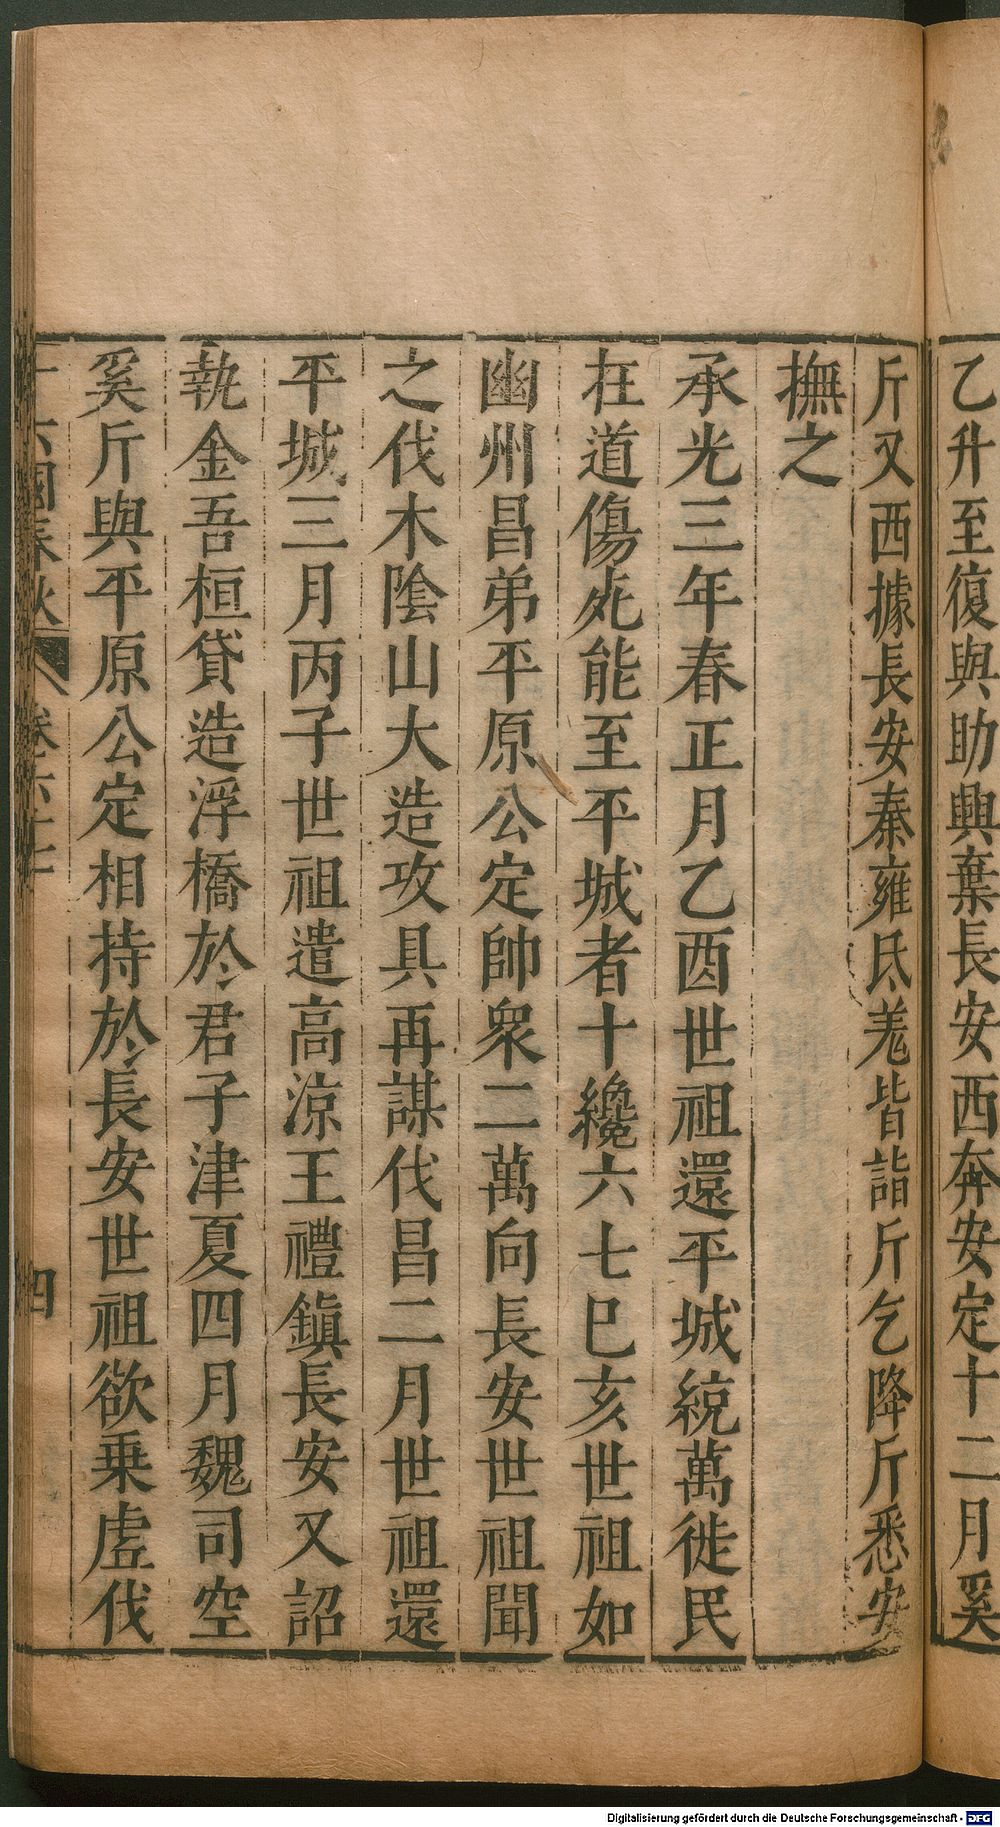 乙升至復與助興棄長安西奔安定十二月奚
斤又西據長安秦雍氐羌皆詣斤乞降斤悉安
撫之
承光三年春正月乙酉世祖還平城統萬徙民
在道傷死能至平城者十纔六七巳亥世祖如
幽州昌弟平原公定帥衆二萬向長安世祖聞
之伐木陰山大造攻具再謀伐昌二月世祖還
平城三月丙子世祖遣高涼王禮鎮長安又詔
執金吾桓貸造浮橋於君子津夏四月魏司空
奚斤與平原公定相持於長安世祖欲乗虛伐
十六國春秋 卷六十七 四
Digitalisierung gefördert durch die Deutsche Forschungsgemeinschaft - DFG